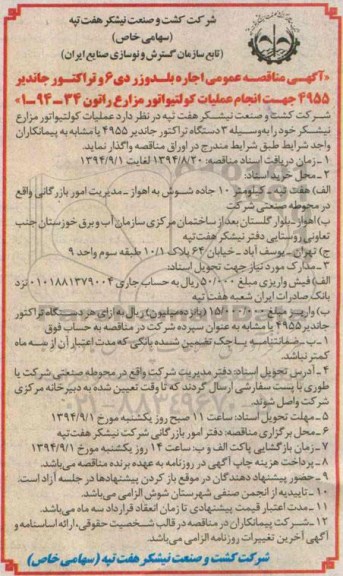 شرکت کشت و صنعت نیشکر هفت تپه
(سهامی خاص)
(تابع سازمان گسترش و نوسازی صنایع ایران)
«آگهی مناقصه عمومی اجاره بلدوزر دی۶ و تراکتور جاندیر
۴۹۵۵ جهت انجام عملیات کولتیواتور مزارع راتون ۳۴-۹۴-۱»
شرکت کشت و صنعت نیشکر هفت تپه در نظر دارد عملیات کولتیواتور مزارع
نیشکر خود را به وسیله ۳ دستگاه تراکتور جاندیر ۴۹۵۵ یا مشابه به پیمانکاران
واجد شرایط طبق شرایط مندرج در اوراق مناقصه واگذار نماید.
۱- زمان دریافت اسناد مناقصه: ۱۳۹۴/۸/۲۰ لغایت ۱۳۹۴/۹/۱
۲- محل خرید اسناد:
الف) هفت تپه - کیلومتر ۱۰ جاده شوش به اهواز - مدیریت امور بازرگانی واقع
در محوطه صنعتی شرکت
ب) اهواز - بلوار گلستان بعد از ساختمان مرکزی سازمان آب و برق خوزستان جنب
تعاونی روستایی دفتر نیشکر هفت تپه
ج) تهران - یوسف آباد - خیابان ۶۴ پلاک ۱۰/۱ طبقه سوم واحد ۹
۳- مدارک مورد نیاز جهت تحویل اسناد:
الف) فیش واریزی مبلغ ۵۰۰/۰۰۰ ریال به حساب جاری ۰۱۰۱۸۸۱۳۷۹۰۰۴ نزد
بانک صادرات ایران شعبه هفت تپه
ب) واریز مبلغ ۱۵/۰۰۰/۰۰۰ (پانزده میلیون) ریال به ازای هر دستگاه تراکتور
جاندیر ۴۹۵۵ یا مشابه به عنوان سپرده شرکت در مناقصه به حساب فوق
۱-ب- ضمانتنامه یا چک تضمین شده بانکی که مدت اعتبار آن از سه ماه
کمتر نباشد.
۴- آدرس تحویل اسناد: دفتر مدیریت شرکت واقع در محوطه صنعتی شرکت یا
طوری با پست سفارشی ارسال گردند که تا وقت تعیین شده به دبیرخانه مرکزی
شرکت واصل شوند.
۵- مهلت تحویل اسناد: ساعت ۱۱ صبح روز یکشنبه مورخ ۱۳۹۴/۹/۱
۶- محل برگزاری مناقصه: دفتر امور بازرگانی شرکت نیشکر هفت تپه
۷- زمان بازگشایی پاکت الف و ب: ساعت ۱۴ روز یکشنبه مورخ ۱۳۹۴/۹/۱
۸- پرداخت هزینه چاپ آگهی در روزنامه به عهده برنده مناقصه می باشد.
۹- حضور پیشنهاد دهندگان در موقع باز کردن پیشنهادها در جلسه آزاد است.
۱۰- تاییدیه از انجمن صنفی شهرستان شوش الزامی می باشد.
۱۱- مدت اعتبار قیمت پیشنهادی تا زمان انعقاد قرارداد سه ماه می باشد.
۱۲- شرکت پیمانکاران در مناقصه در قالب شخصیت حقوقی، ارائه اساسنامه و
آگهی آخرین تغییرات روزنامه الزامی می باشد.
شرکت کشت و صنعت نیشکر هفت تپه (سهامی خاص)